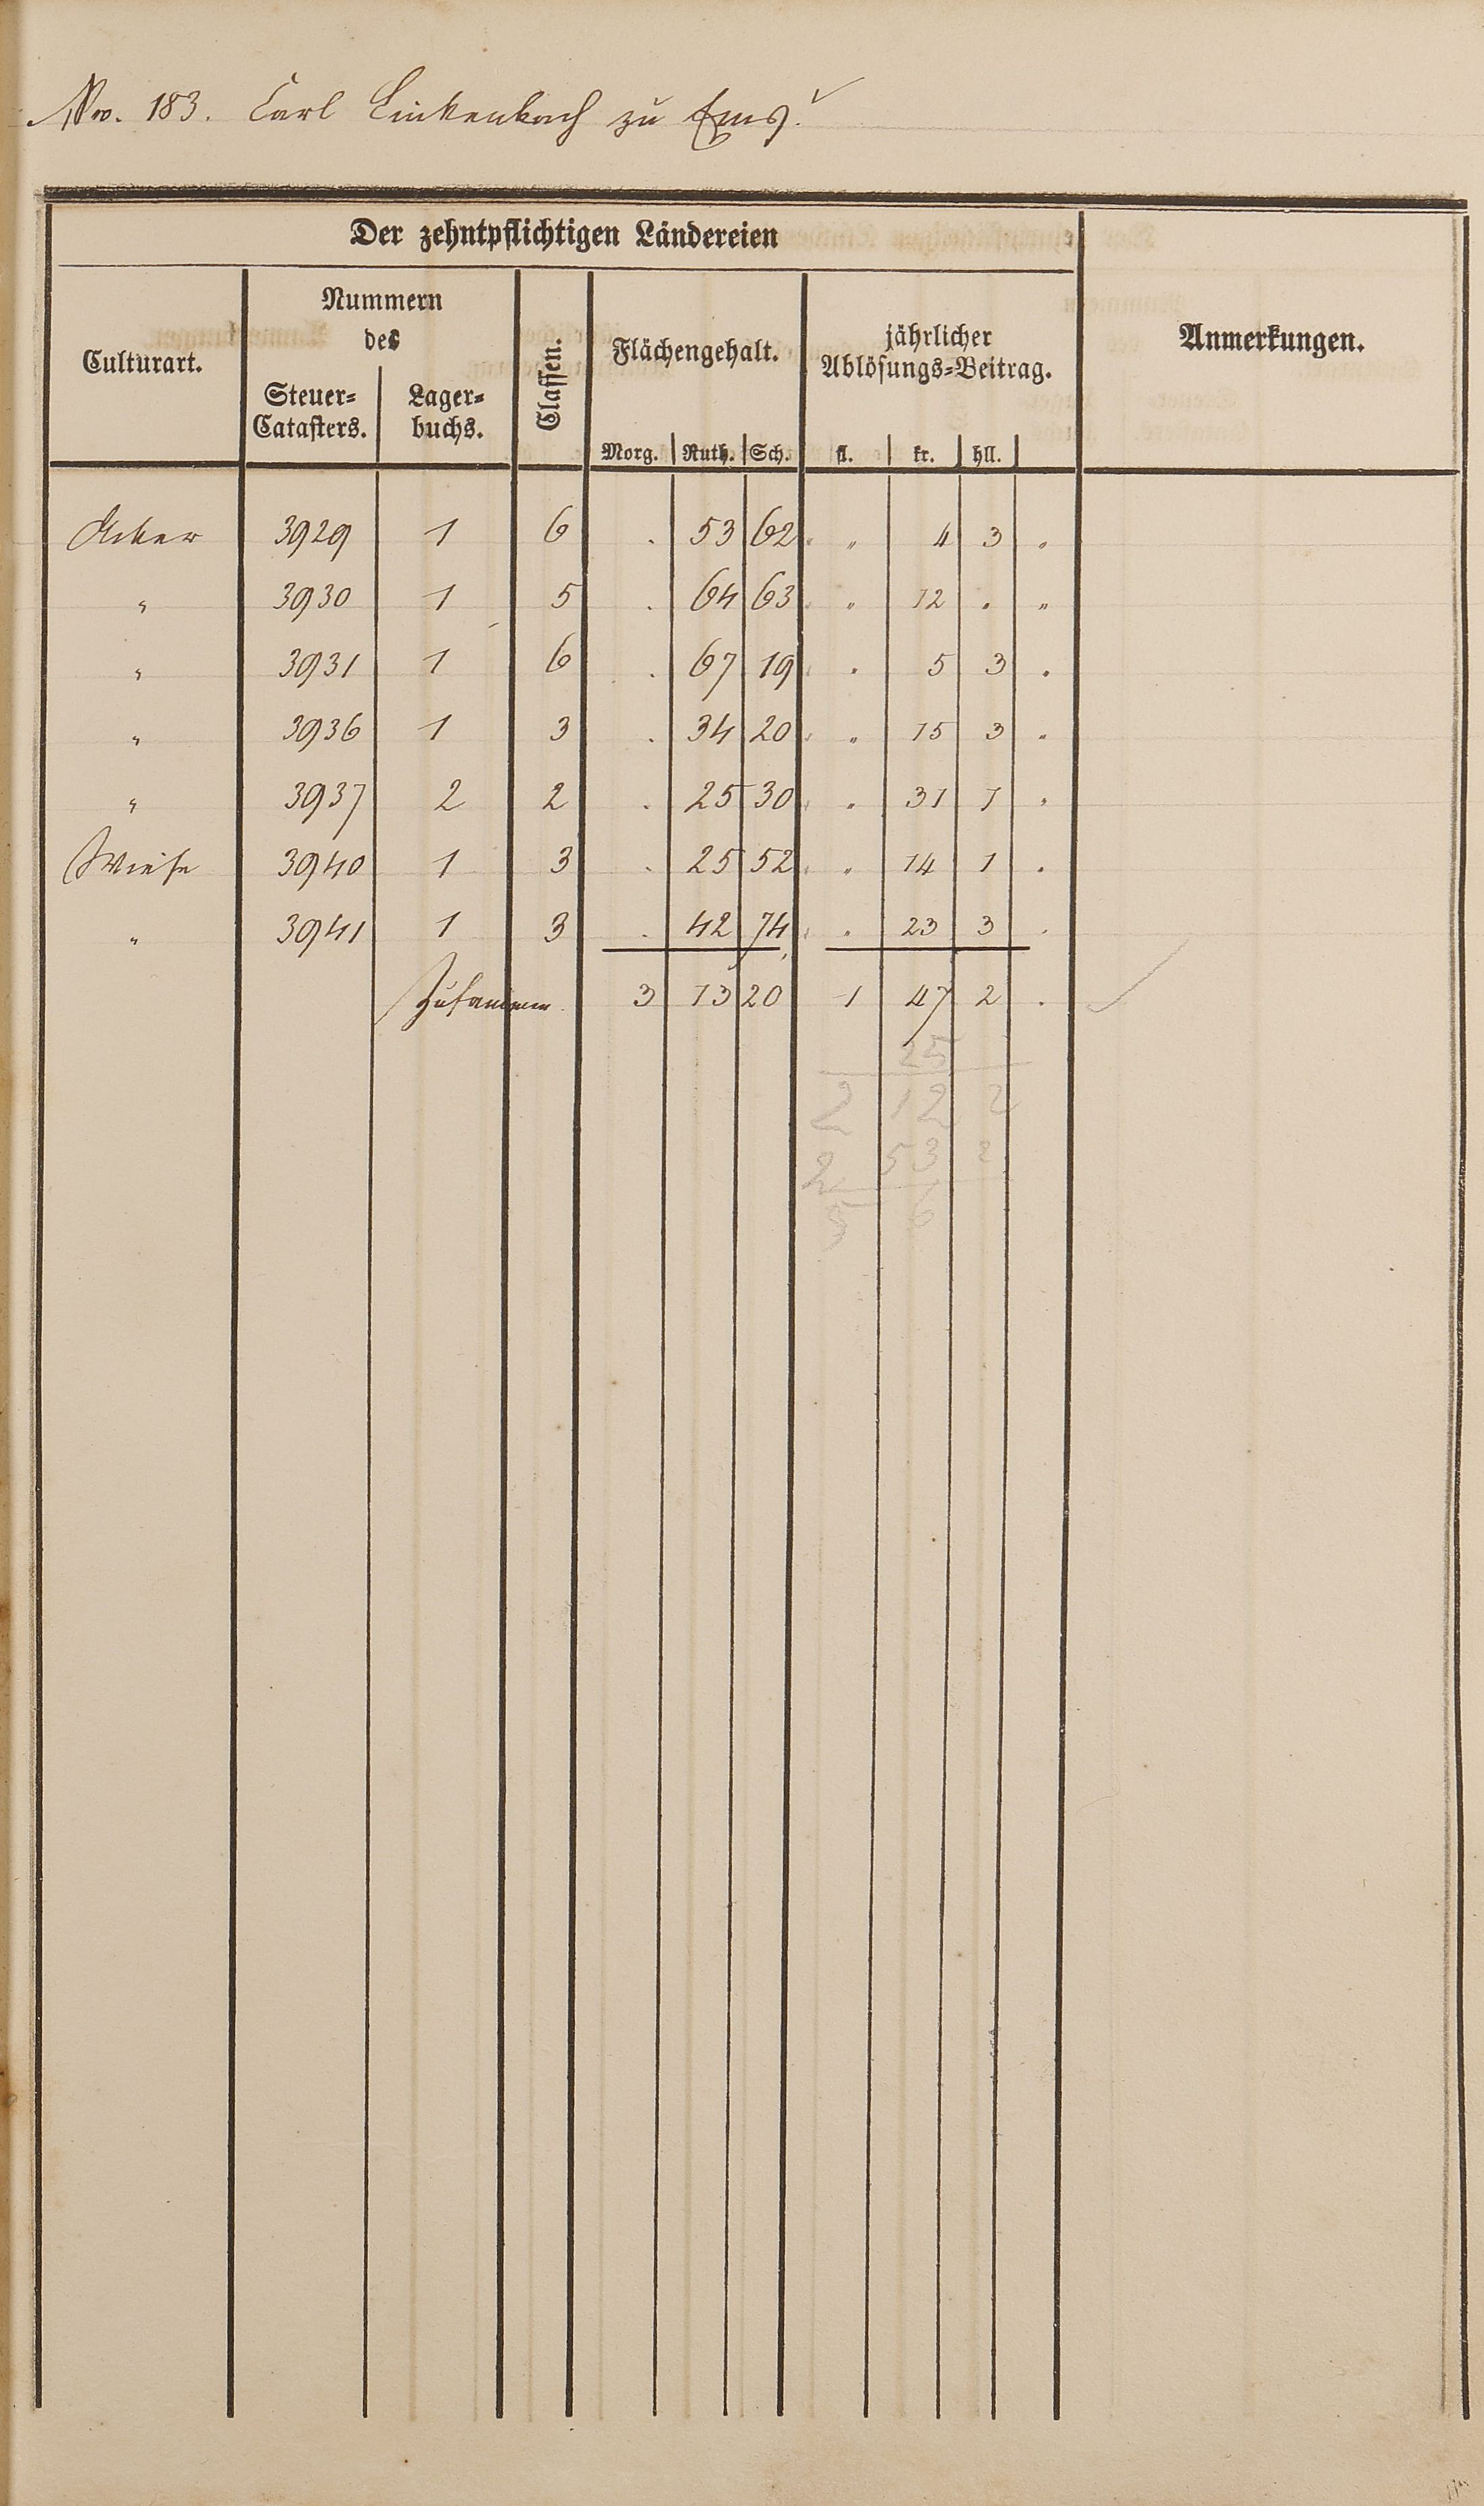 No. 183. Carl Linkenbach zu Ems.
Der zehntpflichtigen Ländereien
Culturart.
Nummern
des
Steuer-
Catasters.
Lager-
buchs.
Classen.
Flächengehalt.
Morg. Ruth. Sch.
jährlicher
Ablösungs-Beitrag.
fl. kr. hll.
Anmerkungen.
Acker 3929 1 6 . 53 62 " 4 3 "
" 3930 1 5 . 64 63 " 12 . "
" 3931 1 6 . 67 19 . 5 3 .
" 3936 1 3 . 34 20 " 15 3 "
" 3937 2 2 . 25 30 " 31 1 "
Wiese 3940 1 3 . 25 52 " 14 1 .
" 3941 1 3 . 42 74 . 23 3 .
Zusammen 3 13 20 1 47 2 .
25
2 12 2
2 53 2
5 6